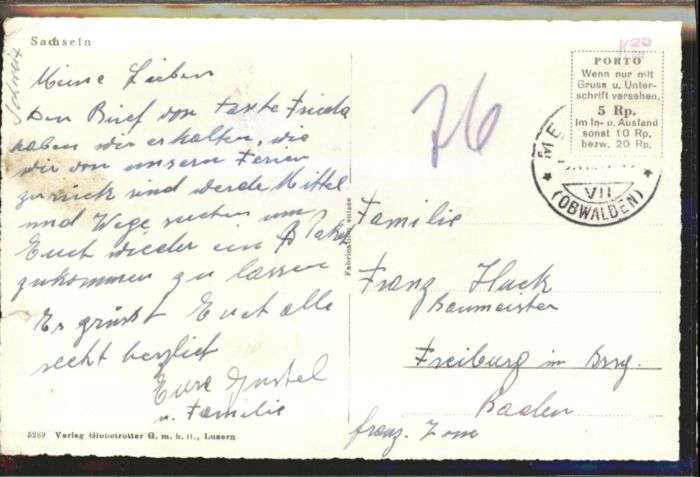 Schweiz
Sachseln
Meine Lieben
Den Brief von Tante Frieda
haben wir erhalten, wie
wir von unsern Ferien
zurück sind werde Mittel
und Wege suchen um
Euch wieder ein Pak
zukommen zu lassen
Es grüsst Euch alle
recht herzlich
Eure Gustel
u. Familie
5289 Verlag Globetrotter G. m. b. H., Luzern
Fabrication suisse
76
20
PORTO
Wenn nur mit
Gruss u. Unter-
schrift versehen,
5 Rp.
im In- u. Ausland
sonst 10 Rp.
bezw. 20 Rp.
ME
VII
(OBWALDEN)
Familie
Franz Huck
Baumeister
Freiburg in Brsg.
Baden
franz. Zone